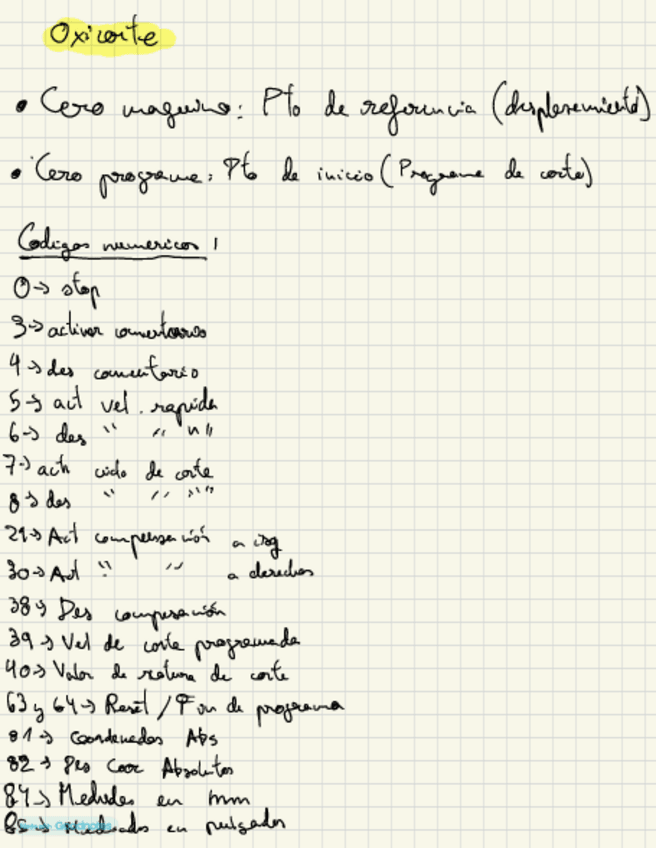 Oxicorte
• Cero maquina: Pto de referencia (desplazamiento)
• Cero programa: Pto de inicio (Programa de corte)
Codigos numericos:
0 → stop
3 → activar comentarios
4 → des comentario
5 → act vel. rapida
6 → des " " " "
7 → act ciclo de corte
8 → des " " " "
29 → Act compensación a izq
30 → Act " " a derecha
38 → Des compensación
39 → Vel de corte programada
40 → Valor de ratura de corte
63 y 64 → Reset / Fin de programa
81 → Coordenadas Abs
82 → Des Coor Absolutas
84 → Medidas en mm
85 → Medidas en pulgadas